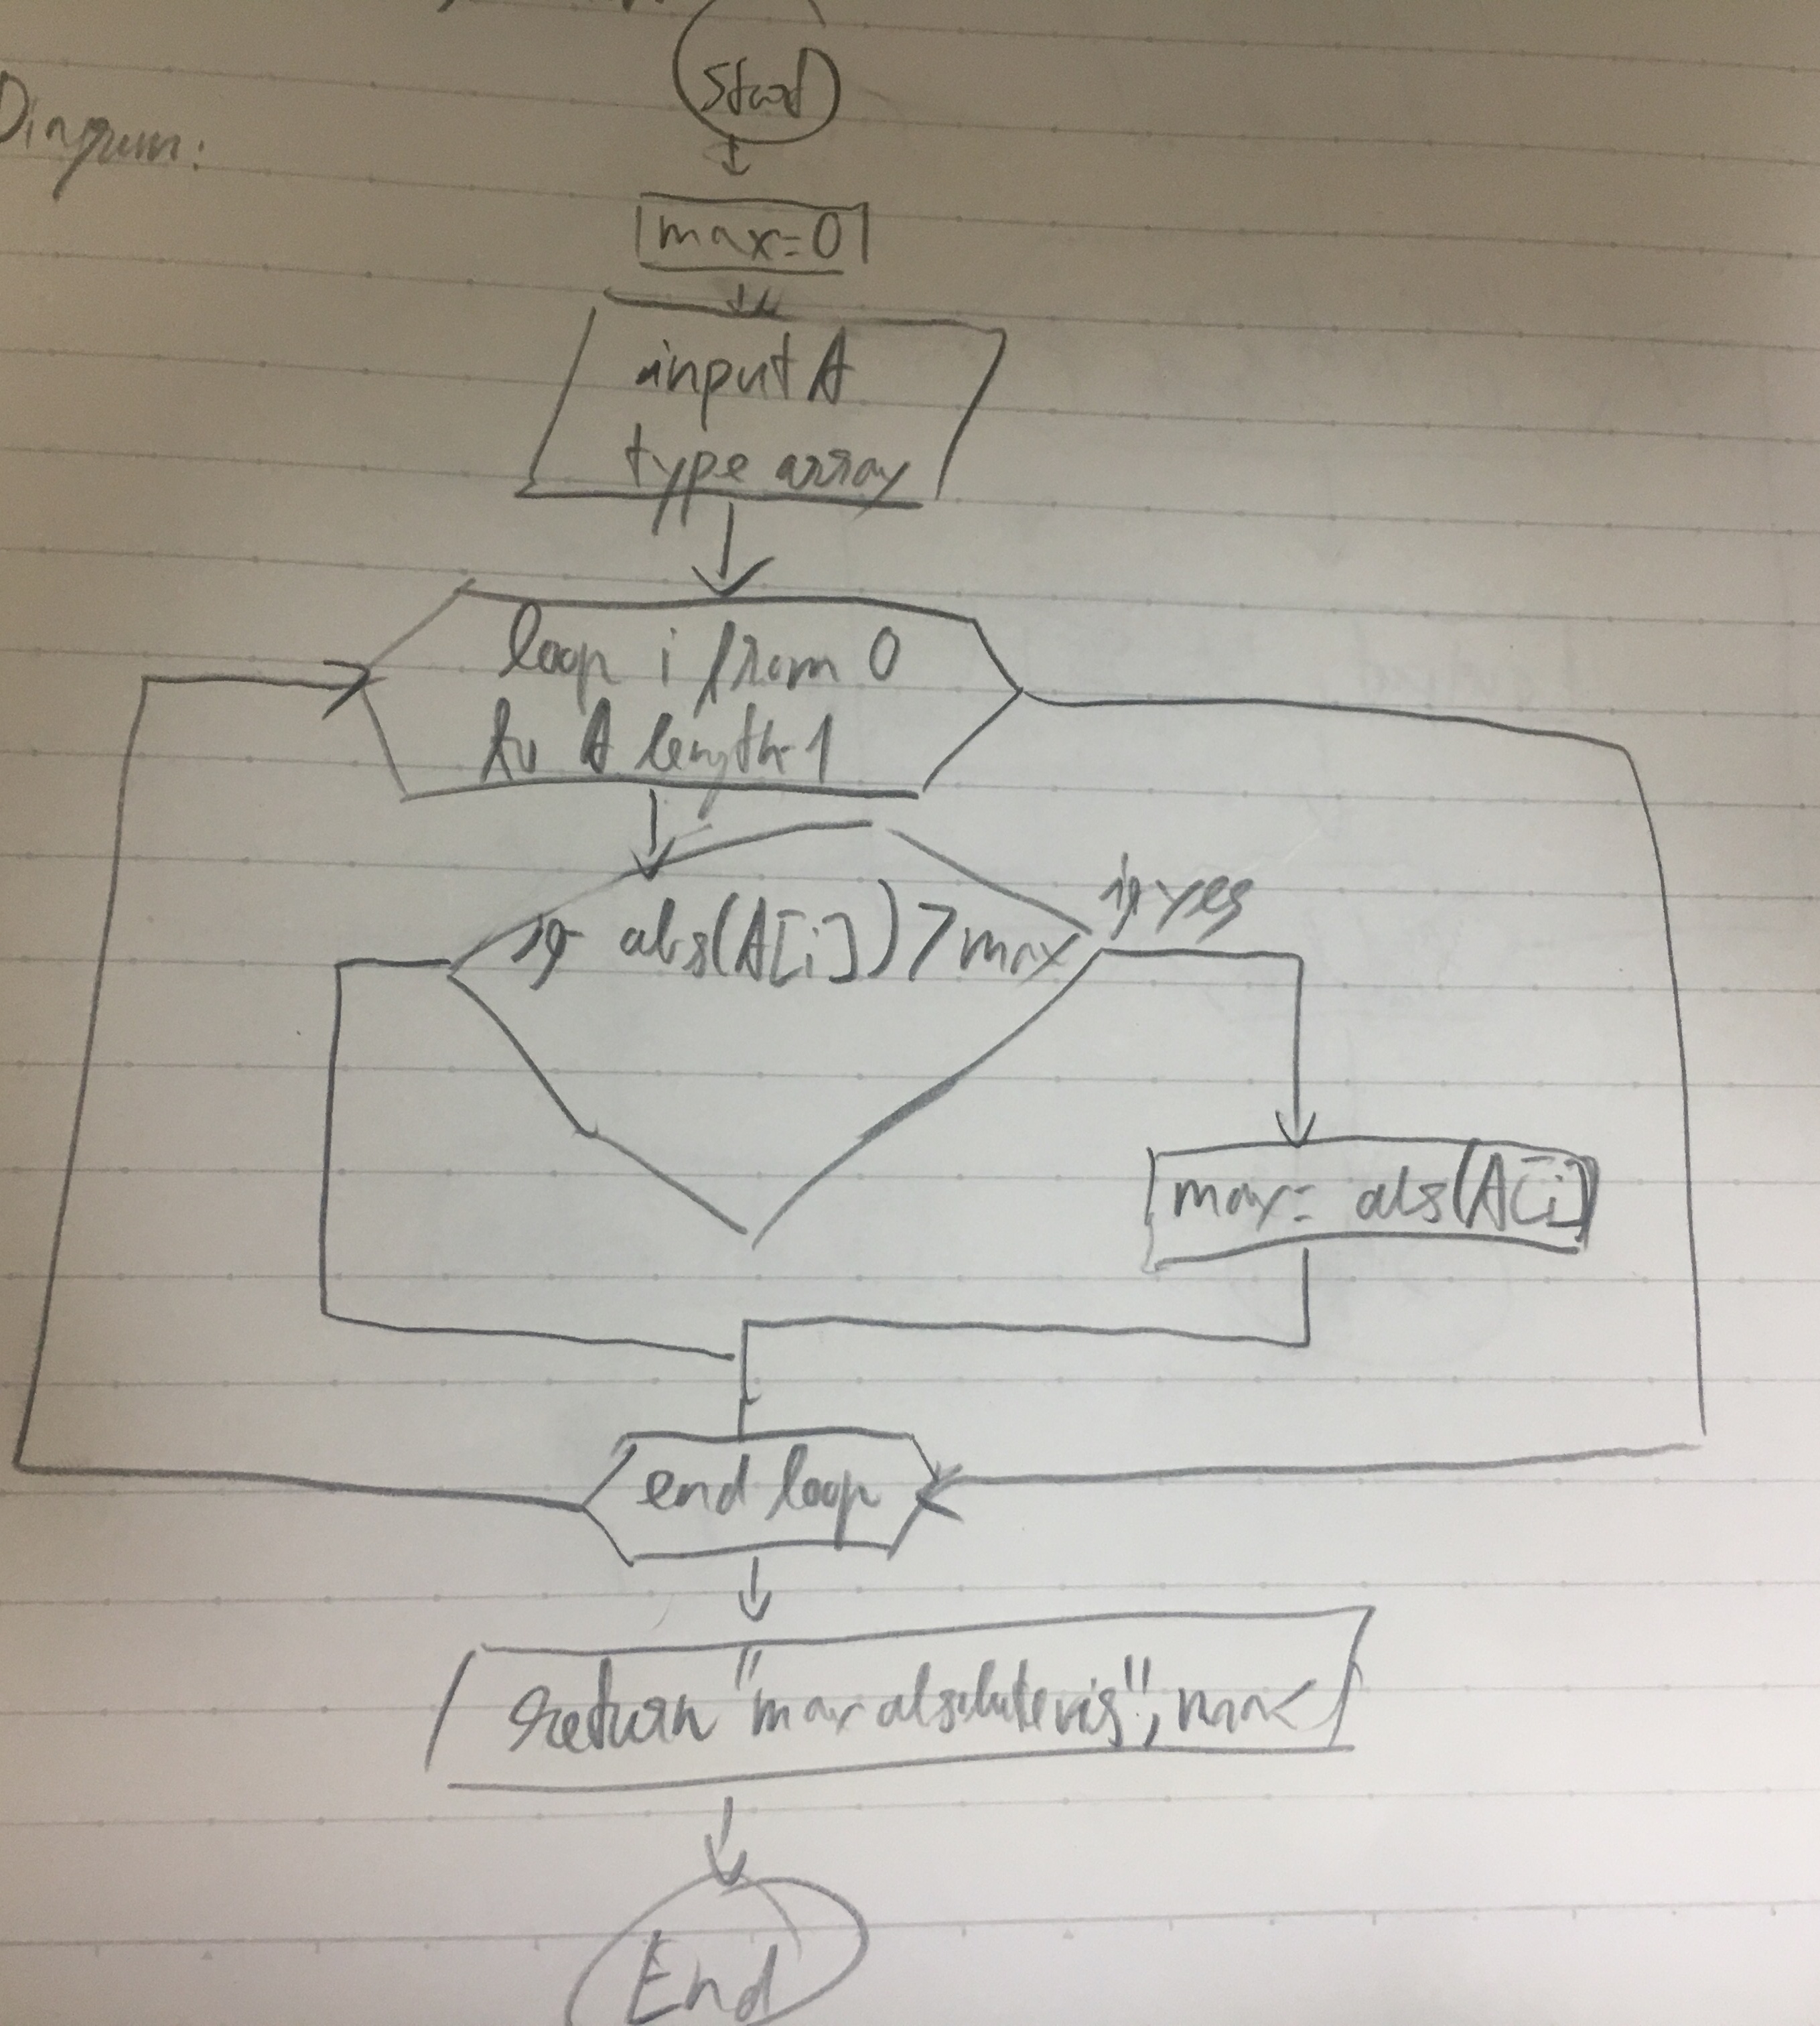 Diagram:
Start
max=0
input A
type array
loop i from 0
to A length-1
if abs(A[i])>max
if yes
max= abs(A[i])
end loop
return "max absolute is", max
End